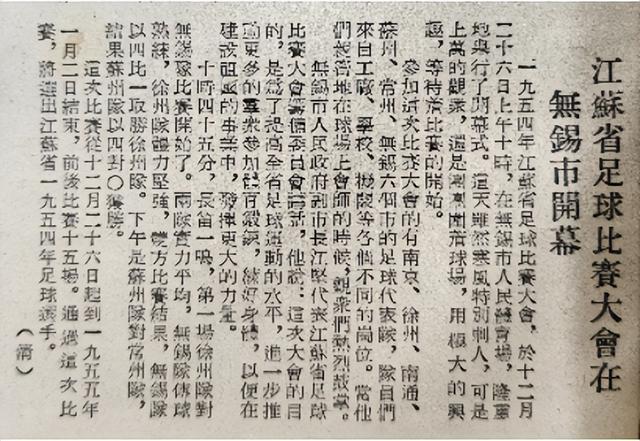 江蘇省足球比賽大會在
無錫市開幕
一九五四年江蘇省足球比賽大會，於十二月
二十六日上午十時，在無錫市人民體育場，隆重
地舉行了開幕式。這天雖然寒風特別刺人，可是
上萬的觀衆，還是團團圍滿球場，用極大的興
趣，等待着比賽的開始。
參加這次比賽大會的有南京、徐州、南通、
蘇州、常州、無錫六個市的足球代表隊，隊員們
來自工廠、學校、機關等各個不同的崗位。當他
們披着地在球場上會師的時候，觀衆們熱烈鼓掌。
無錫市人民政府副市長江堅代表江蘇省足球
比賽大會籌備委員會講話，他說：這次大會的目
的，是爲了提高全省足球運動的水平，進一步推
動更多的羣衆參加體育鍛鍊，練好身體，以便在
建設祖國的事業中，發揮更大的力量。
十時四十五分，長笛一鳴，第一場徐州隊對
無錫隊比賽開始了。兩隊實力平均，無錫隊傳球
熟練，徐州隊體力堅強，雙方比賽結果，無錫隊
以四比一取勝徐州隊。下午是蘇州隊對常州隊，
結果蘇州隊以四對〇獲勝。
這次比賽從十二月二十六日起到一九五五年
一月二日結束，前後比賽十五場。通過這次比
賽，將選出江蘇省一九五四年足球選手。
（清）